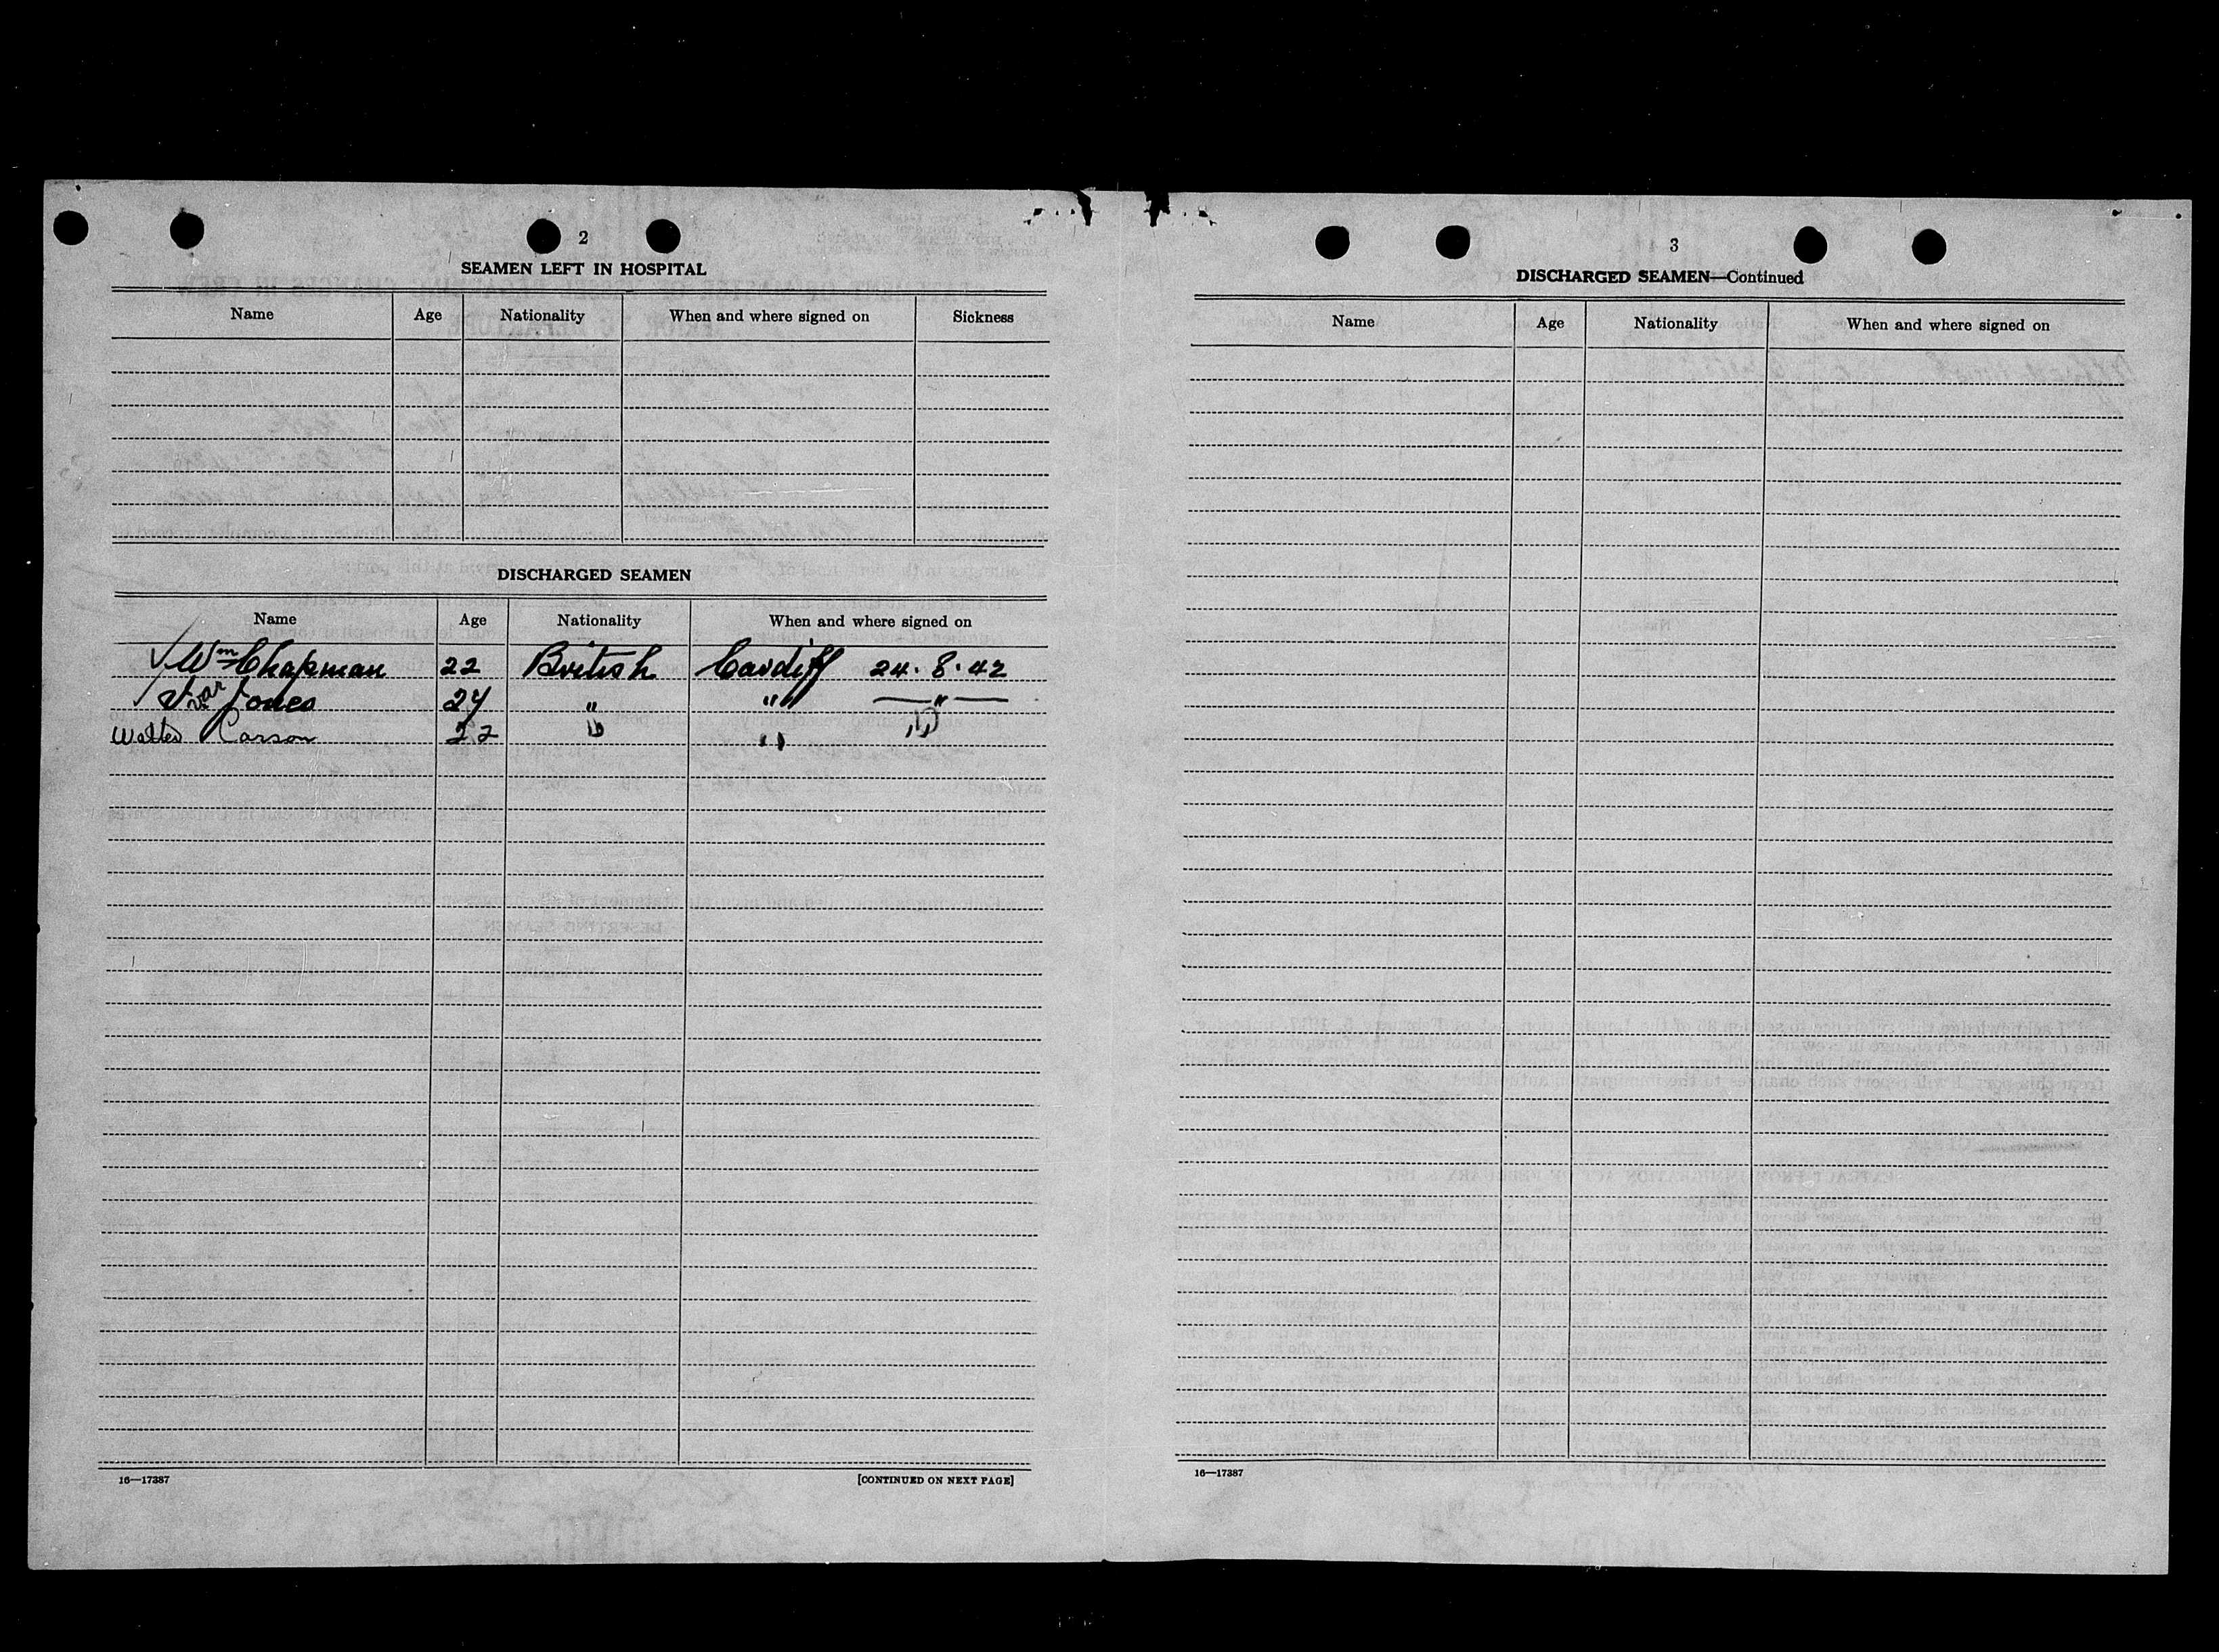 2
SEAMEN LEFT IN HOSPITAL
Name Age Nationality When and where signed on Sickness
DISCHARGED SEAMEN
Name Age Nationality When and where signed on
Wm Chapman 22 British Cardiff 24.8.42
Ivar Jones 24 " " — " —
Walter Carson 22 " " "
16—17387 [CONTINUED ON NEXT PAGE]
3
DISCHARGED SEAMEN—Continued
Name Age Nationality When and where signed on
16—17387